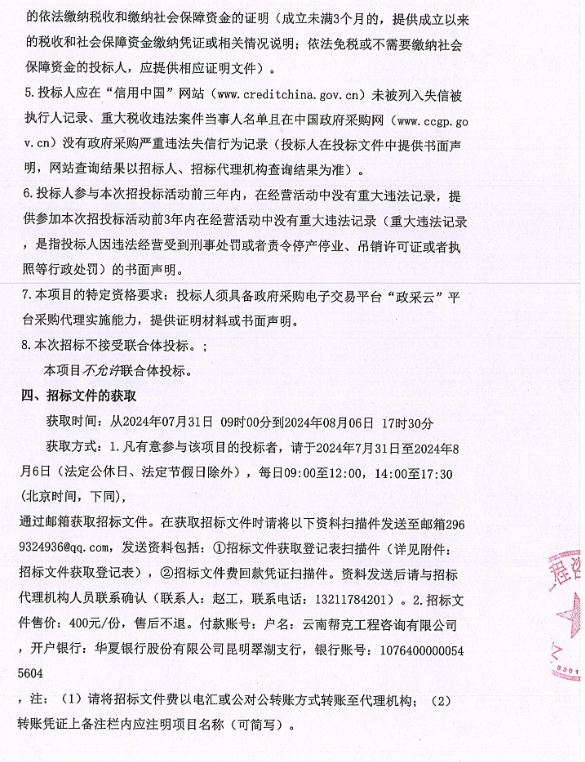 的依法缴纳税收和缴纳社会保障资金的证明（成立未满3个月的，提供成立以来
的税收和社会保障资金缴纳凭证或相关情况说明；依法免税或不需要缴纳社会
保障资金的投标人，应提供相应证明文件）。
5.投标人应在“信用中国”网站（www.creditchina.gov.cn）未被列入失信被
执行人记录、重大税收违法案件当事人名单且在中国政府采购网（www.ccgp.go
v.cn）没有政府采购严重违法失信行为记录（投标人在投标文件中提供书面声
明，网站查询结果以招标人、招标代理机构查询结果为准）。
6.投标人参与本次招投标活动前三年内，在经营活动中没有重大违法记录，提
供参加本次招投标活动前3年内在经营活动中没有重大违法记录（重大违法记录
，是指投标人因违法经营受到刑事处罚或者责令停产停业、吊销许可证或者执
照等行政处罚）的书面声明。
7.本项目的特定资格要求：投标人须具备政府采购电子交易平台“政采云”平
台采购代理实施能力，提供证明材料或书面声明。
8.本次招标不接受联合体投标。;
本项目不允许联合体投标。
四、招标文件的获取
获取时间：从2024年07月31日 09时00分到2024年08月06日 17时30分
获取方式：1.凡有意参与该项目的投标者，请于2024年7月31日至2024年8
月6日（法定公休日、法定节假日除外），每日09:00至12:00，14:00至17:30
(北京时间，下同),
通过邮箱获取招标文件。在获取招标文件时请将以下资料扫描件发送至邮箱296
9324936@qq.com，发送资料包括：①招标文件获取登记表扫描件（详见附件：
招标文件获取登记表），②招标文件费回款凭证扫描件。资料发送后请与招标
代理机构人员联系确认（联系人：赵工，联系电话：13211784201）。2.招标文
件售价：400元/份，售后不退。付款账号：户名：云南帮克工程咨询有限公司
，开户银行：华夏银行股份有限公司昆明翠湖支行，银行账号：1076400000054
5604
，注：（1）请将招标文件费以电汇或公对公转账方式转账至代理机构；（2）
转账凭证上备注栏内应注明项目名称（可简写）。
程咨
5301